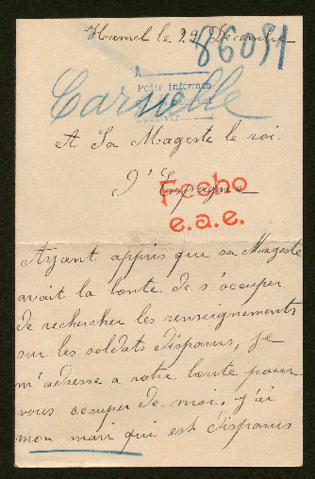 Hamel le 29 Decembre
86091
Carnelle
A
Pedir informes
A Sa Mageste le roi
D'Espagne
Fecho
e.a.e.
Ayant appris que sa Mageste
avait la bonté de s'occuper
de rechercher les renseignements
sur les soldats disparus, je
m'adresse a votre bonté pour
vous occuper de moi, j'ai
mon mari qui est disparus